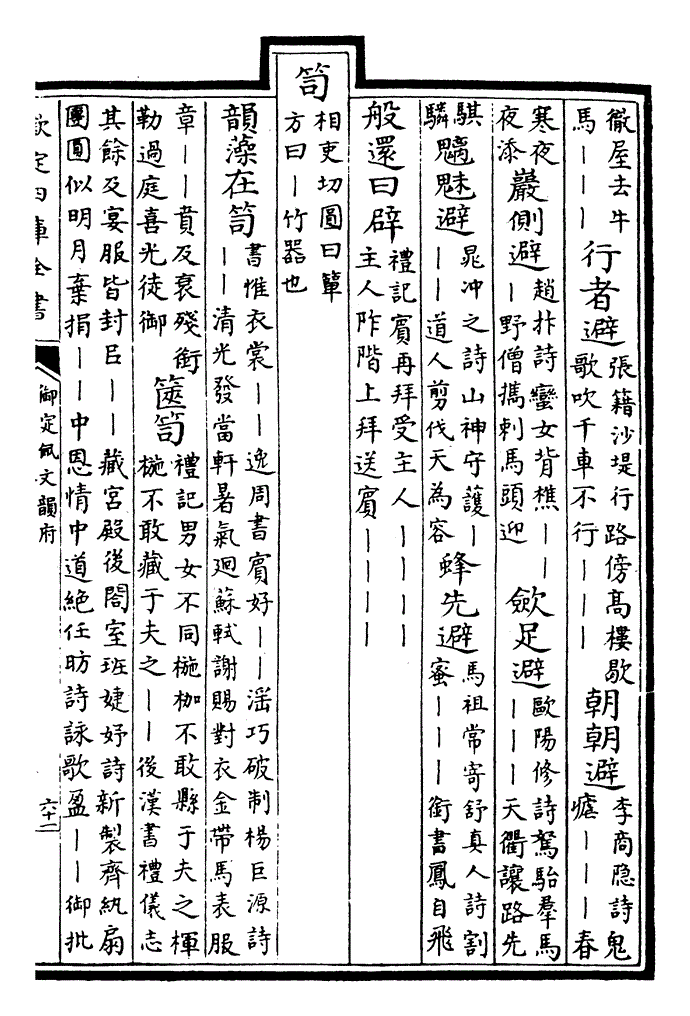 徹屋去牛
馬｜｜｜
行者避
張籍沙堤行路傍高樓歇
歌吹千車不行｜｜｜
朝朝避
李商隐詩鬼
瘧｜｜｜春
寒夜
夜添
巖側避
趙抃詩蠻女背樵｜｜
｜野僧攜刺馬頭迎
歛足避
歐陽修詩駑駘羣馬
｜｜｜天衢讓路先
騏
驎
魑魅避
晁冲之詩山神守護｜
｜｜道人剪伐天為容
蜂先避
馬祖常寄舒真人詩割
蜜｜｜｜銜書鳳自飛
般還曰辟
禮記賓再拜受主人｜｜｜｜
主人阼階上拜送賓｜｜｜｜
笥
相吏切圓曰簞
方曰｜竹器也
韻藻在笥
書惟衣裳｜｜逸周書賓好｜｜滛巧破制楊巨源詩
｜｜清光發當軒暑氣廻蘇軾謝賜對衣金帶馬表服
章｜｜賁及衰殘銜
勒過庭喜光徒御
篋笥
禮記男女不同椸枷不敢縣于夫之楎
椸不敢藏于夫之｜｜後漢書禮儀志
其餘及宴服皆封㠯｜｜藏宮殿後閤室班婕妤詩新製齊紈扇
團圓似明月棄捐｜｜中恩情中道絶任昉詩詠歌盈｜｜御批
欽定四庫全書
御定佩文韻府
六十二